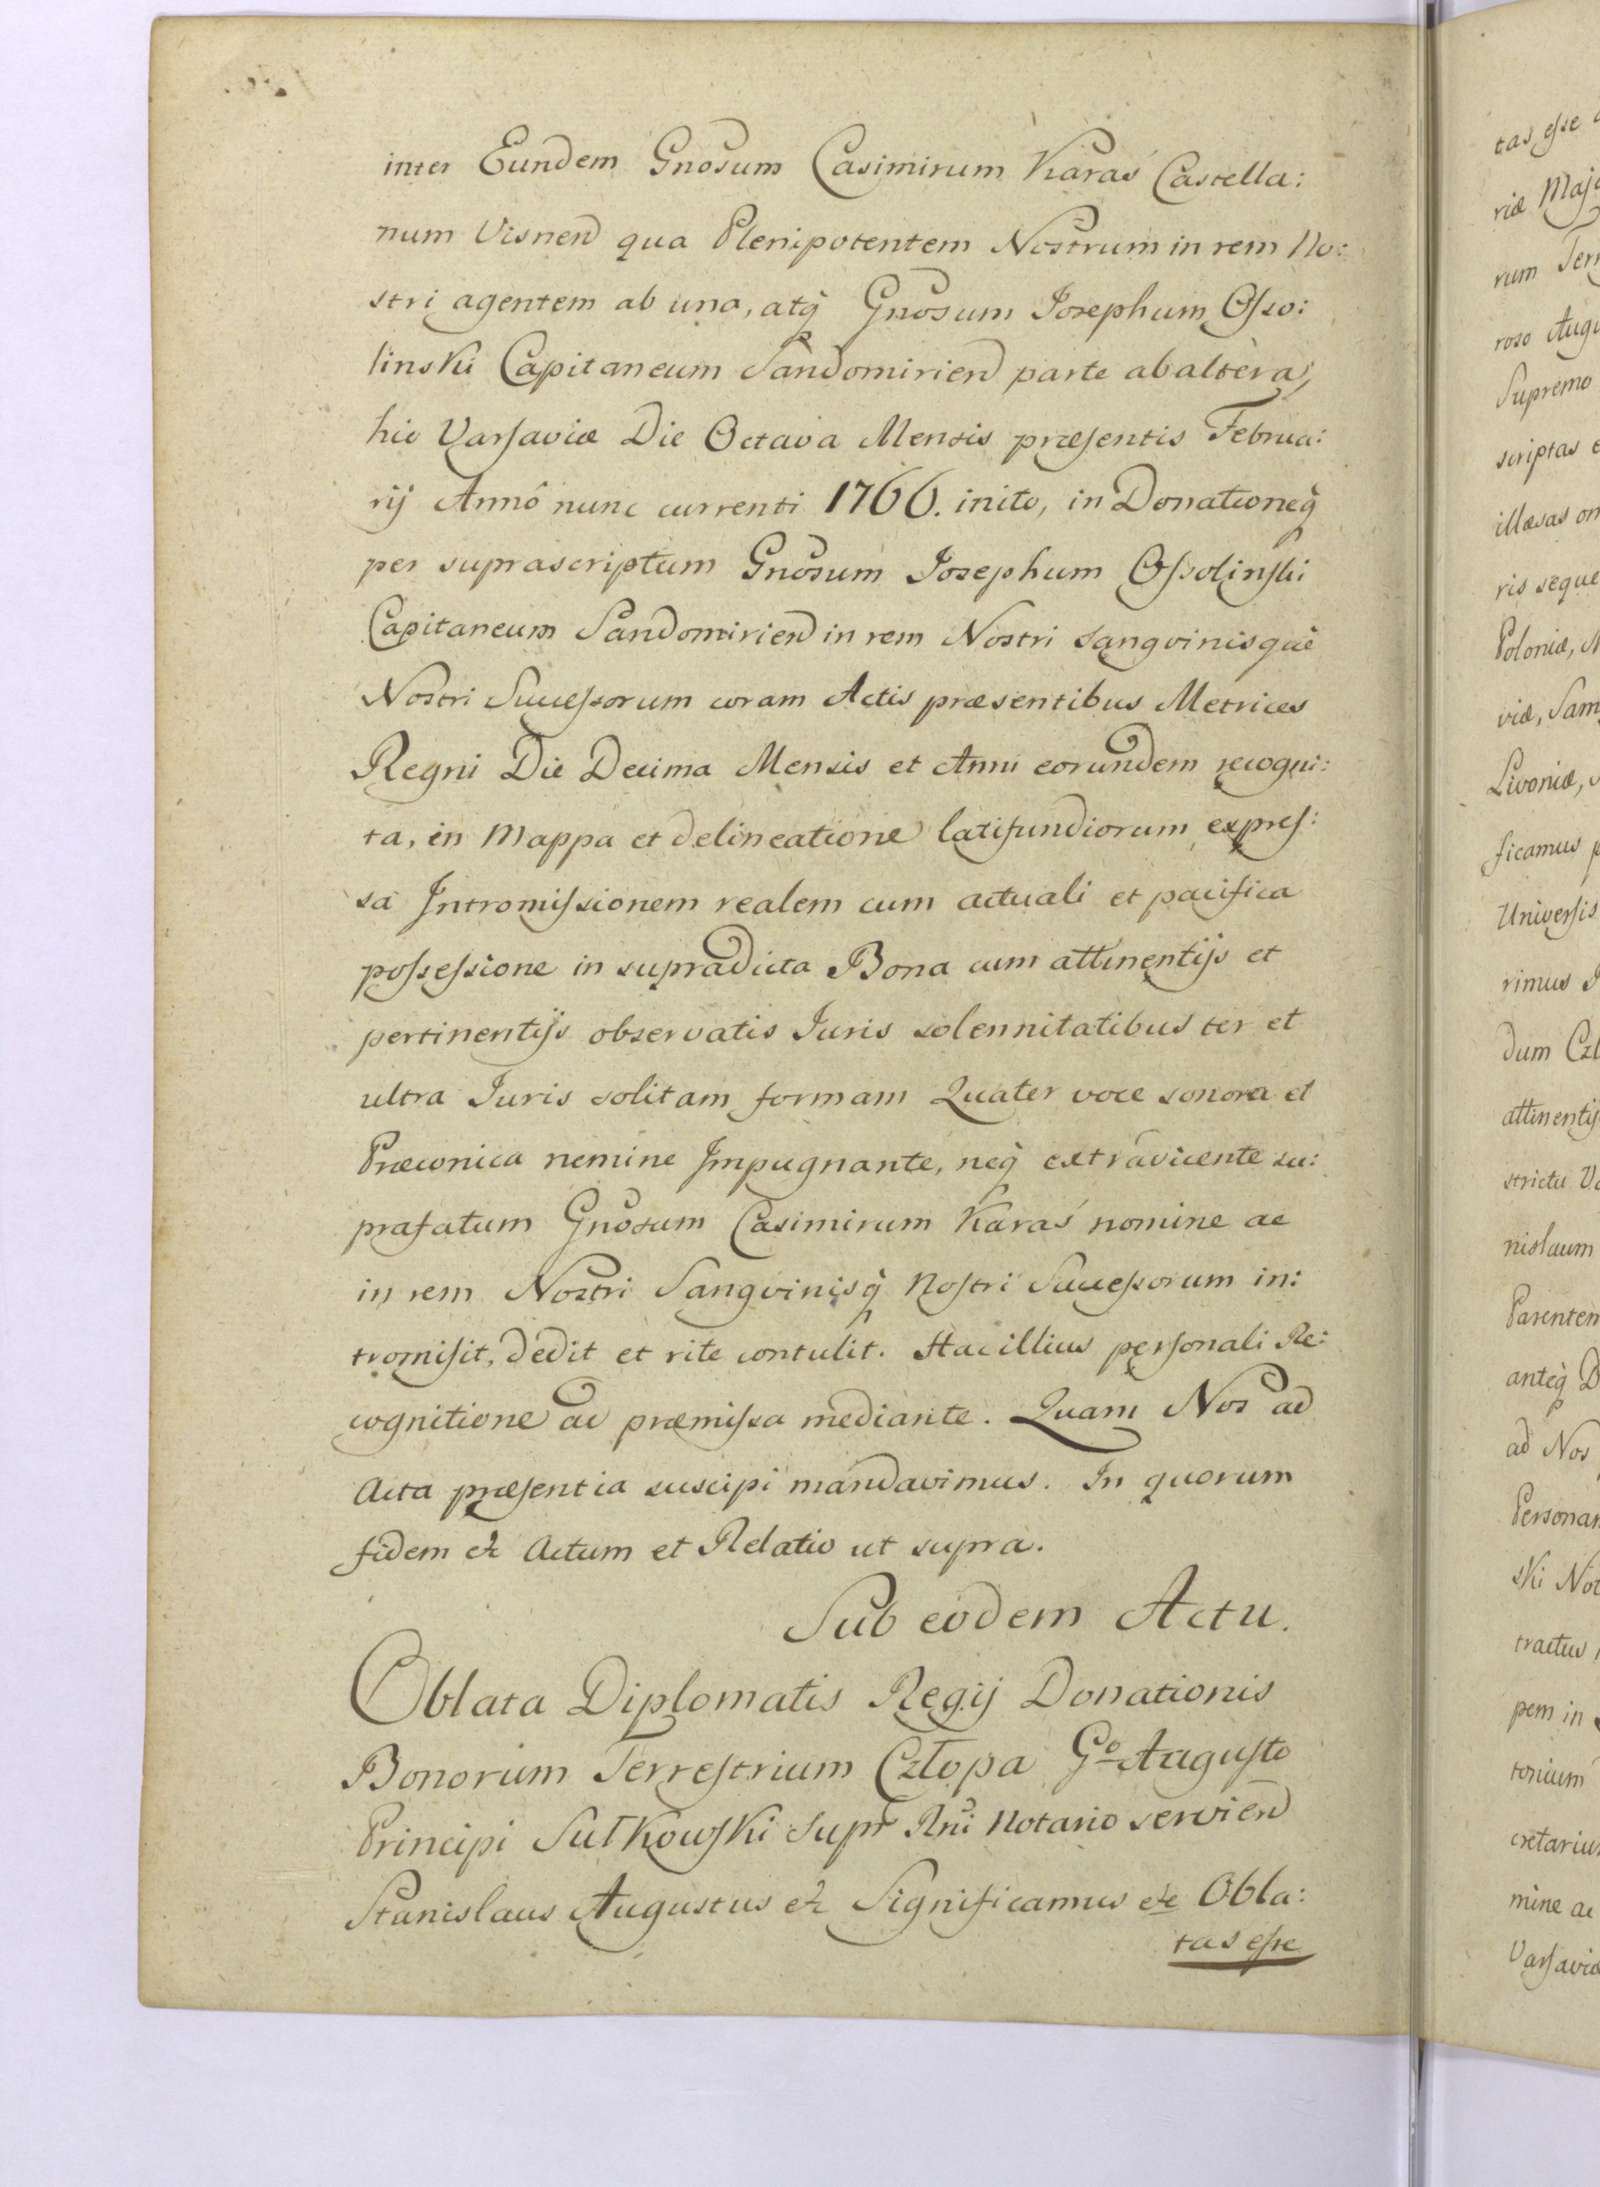 inter Eundem Gnosum Casimirum Karaś Castella:
num Visnen qua Plenipotentem Nostrum in rem No:
stri agentem ab una, atq̃ Gnosum Josephum Osso:
linski Capitaneum Sandomirien parte ab altera,
hic Varsaviæ Die Octava Mensis præsentis Februa:
rij Annô nunc currenti 1766. inito, in Donationeq̃
per suprascriptum Gnosum Josephum Ossolinski
Capitaneum Sandomirien in rem Nostri Sangvinisque
Nostri Successorum coram Actis præsentibus Metrices
Regni Die Decima Mensis et Anni eorundem recogni:
ta, in Mappa et delineatione latifundiorum expres:
sa Intromissionem realem cum actuali et pacifica
possessione in supradicta Bona cum attinentijs et
pertinentijs observatis Juris solennitatibus ter et
ultra Juris solitam formam Quater voce sonora et
Præconica nemine Impugnante, neq̃ extravicente su:
prafatum Gnosum Casimirum Karaś nomine ac
in rem Nostri Sangvinisq̃ Nostri Successorum in:
tromisit, dedit et rite contulit. Hac illius personali Re:
cognitione ac præmissa mediante. Quam Nos ad
Acta præsentia suscipi mandavimus. In quorum
fidem &c Actum et Relatio ut supra.
Sub eodem Actu.
Oblata Diplomatis Regij Donationis
Bonorum Terrestrium Człopa Gº Augusto
Principi Sułkowski Supr Rni Notario servien
Stanislaus Augustus &c Significamus &c Obla:
tas esse
tas esse
riæ Maj
rum Terr
roso Augu
Supremo
scriptas e
illæsas om
ris seque
Poloniæ, M
viæ, Sam
Livoniæ,
ficamus p
Universis
rimus I
dum Czł
attinentij
strictu Va
nislaum
Parentem
anteq̃ D
ad Nos
Personar
ski Not
tractus
pem in
torium
cretariu
mine ac
Varsaviæ